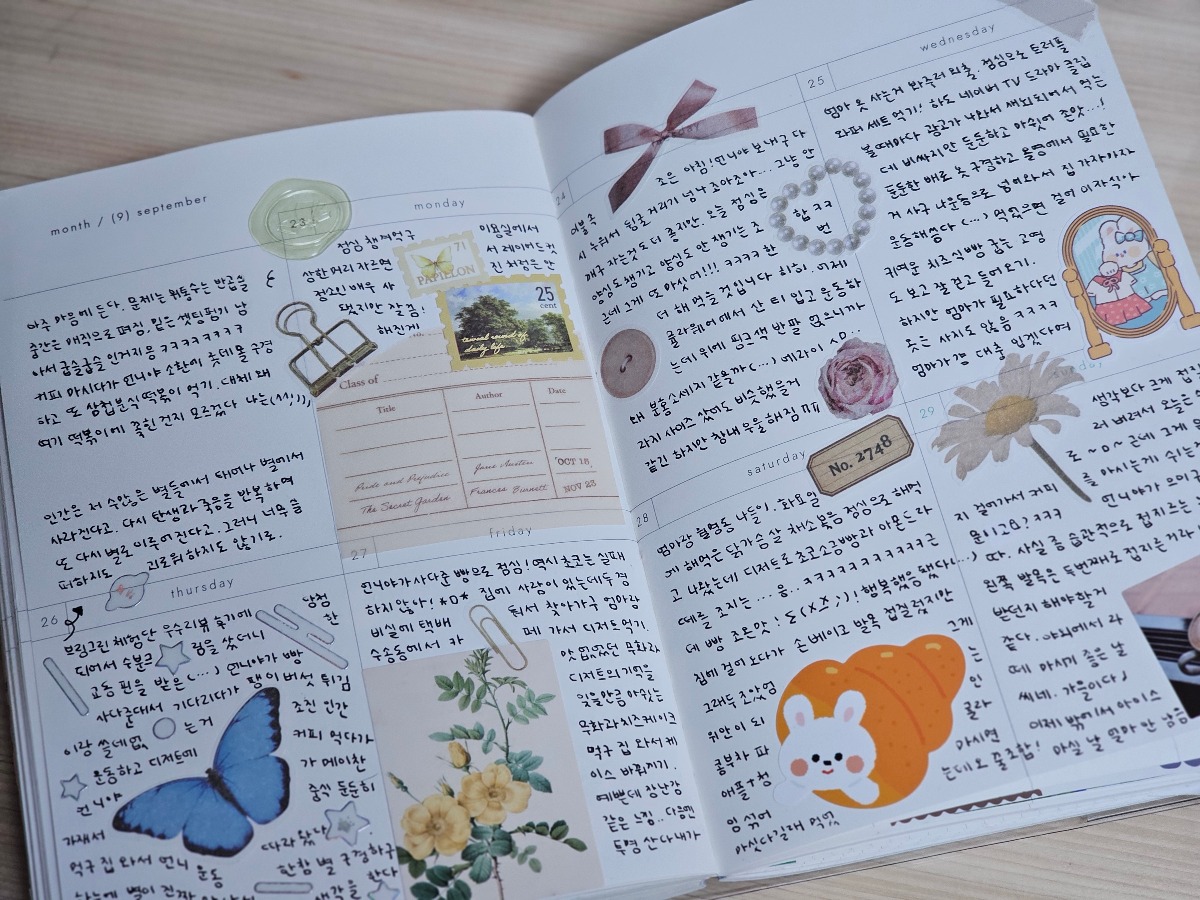 month / (9) september
아주 마음에 든다. 문제는 뒤통수는 반곱슬
중간은 매직으로 펴짐. 밑은 셋팅펌기 남
아서 곱슬곱슬 인거지용 ㅋㅋㅋㅋㅋㅋ
커피 마시다가 언니야 소환해 롯데몰 구경
하고 또 삼첩분식 떡볶이 먹기. 대체 왜
여기 떡볶이에 꽂힌 건지 모르겠다 나는
인간은 저 수많은 별들에서 태어나 별에서
사라진다고. 다시 탄생과 죽음을 반복하며
또 다시 별로 이루어진다고. 그러니 너무 슬
퍼하지도 괴로워하지도 않기로.
23
monday
점심 챙겨먹구
미용실에서
상한 머리 자르면
서 레이어드컷
정고인 배우 사
진 처럼은 안
됐지만 잘 됨!
해진게
71
PAPILLON
25
cent
Class of
Title
Author
Date
Pride and Prejudice
Jane Austen
OCT 18,
The Secret Garden
Frances Burnett
NOV 23
24
조은 아침! 언니야 보내구 다
시 누워서 뒹굴 거리기 넘나 조아조아... 그냥 안
깨구 자는것도 더 좋지만. 오늘 점심은
양심도 챙기고 양심도 안 챙기는 조
근데 그게 또 마싯어!!! ㅋㅋㅋㅋ 한
합 ㅋㅋ
번
더 해 먹는 것입니다 히히. 어제
클라위에어에서 산 티 입고 운동하
는데 위에 핑크색 반팔 없으니까
왜 분홍소세지 같을까
라지 사이즈 샀어도 비슷했을거
같긴 하지만 창내 우울해짐 ㅠㅠ
25
wednesday
엄마 옷 사는거 봐주러 외출. 점심으로 트러플
와퍼 세트 먹기! 하도 네이버 TV 드라마 클립
볼때마다 광고가 나와서 세뇌되어서 먹는
데 비싸지만 든든하고 마쉿어 존맛...!
든든한 배로 옷 구경하고 문명에서 필요한
거 사구 나운동으로 넘어와서 집 가자마자
운동해씀다 (...) 먹었으면 걸어 이자식아
귀여운 치즈식빵 굽는 고영
도 보고 잘 걷고 들어오기.
하지만 엄마가 필요하다던
옷은 사지도 않음 ㅋㅋㅋㅋ
엄마가 깜 대충 입겠다며
26
thursday
보림그린 체험단 우수리뷰 뽑기에
당첨
되어서 수분크
림을 샀더니
한
고등핀을 받은 (...) 언니야가 빵
사다준대서 기다리다가 팽이버섯 튀김
이랑 쓸데없
는거
조진 인간
운동하고 디저트에
커피 먹다가
언니야
가 메이찬
가재서
중식 든든히
따라왔나
먹구 집 와서 언니 운동
한참 별 구경하구
생각을 한다
27
friday
언니야가 사다준 빵으로 점심! 역시 초코는 실패
하지 않아! *ㅁ* 집에 사람이 있는데두 경
비실에 택배
둬서 찾아가구 엄마랑
수송동에서 카
페 가서 디저트먹기.
맛 없었던 무화과
디저트의 기억을
잊을만큼 마쉿는
무화과치즈케이크
먹구 집 와서 케
이스 바꿔끼기.
예쁜데 장난감
같은 느낌.. 다음엔
투명 산다 내가
28
saturday
No. 2748
엄마랑 월명동 나들이. 화요일
에 해먹은 닭가슴살 채소볶음 점심으로 해먹
고 나왔는데 디저트로 초코소금빵과 아몬드라
떼를 조지는 ... 응.. ㅋㅋㅋㅋㅋㅋㅋㅋ근
데 빵 조온맛! 행복했응 됐다
집에 걸어오다가 손 베이고 발목 접질렀지만
그래두 조았었
그게
는
인
위안이 되
클라
공부차 파
마시면
애플↑청
는데 오 줄조합!
잉 싶어
마싯다길래 먹었
29
생각보다 크게 접질
러 버려서 오늘은
로 ~ㅇ~ 근데 그게
를 마시는게 쉬는
지 걸어가서 커피
언니야가
몸이고요? ㅋㅋㅋ
따. 사실 좀 습관적으로 접지르는
왼쪽 발목은 두번째로 접지른거라
받던지 해야 할거
같다. 야외에서 라
떼 마시기 좋은 날
씨네. 가을이다♪
이제 밖에서 아이스
마실 날 얼마 안 남음